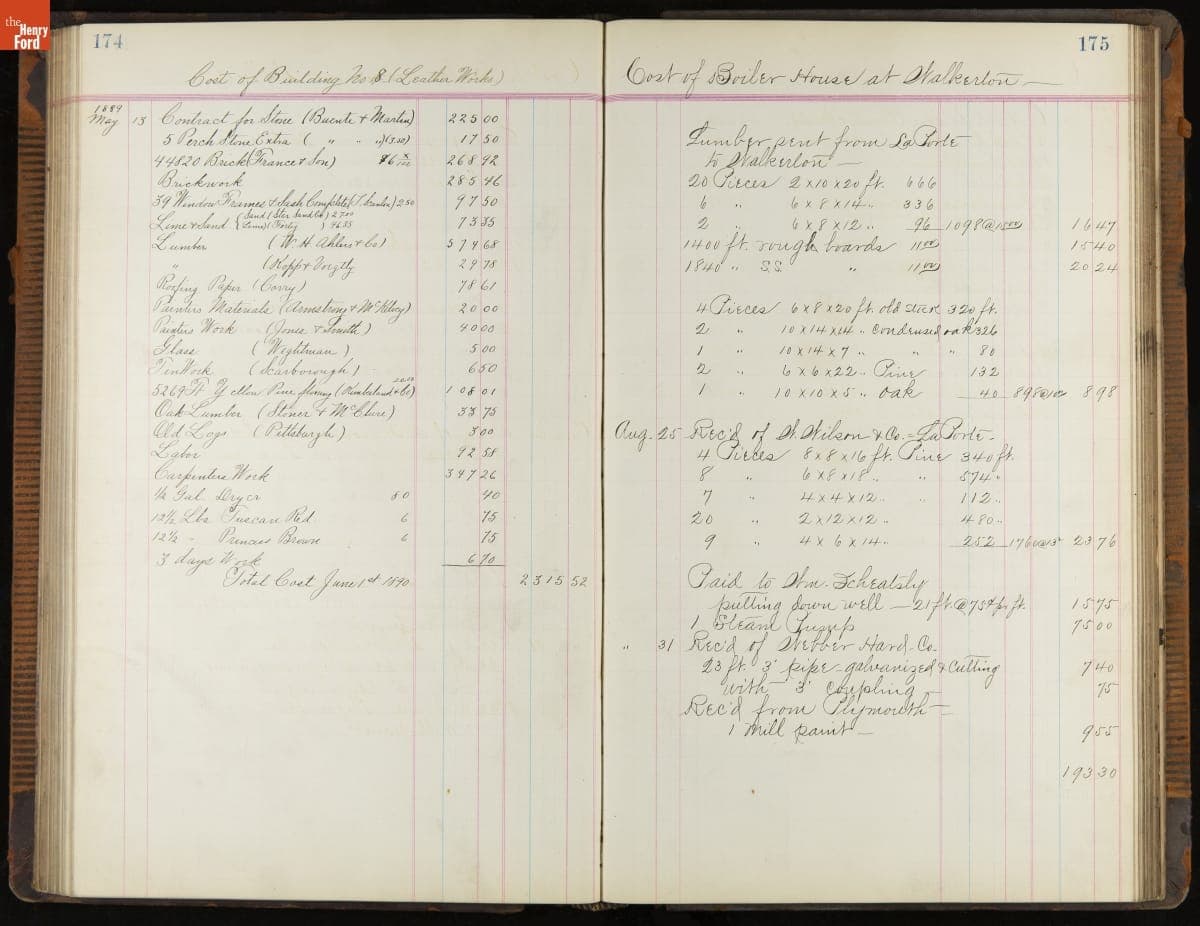 the Henry Ford
174
Cost of Building No 8 (Leather Works)
1889
May 13 Contract for Stone (Buente & Martin) 225 00
5 Perch Stone Extra ( " " ") (3.50) 17 50
44820 Brick (France & Son) 268 92
Brickwork 285 46
39 Window Frames & Sash Complete 2 50 97 50
Lime & Sand 73 35
Lumber (W. H. Ahlers & Co) 579 68
" (Kopp & Voigtly 29 78
Roofing Paper (Corry) 78 61
Painters Materials (Armstrong & McKelvy) 20 00
Painters Work (Jones & Smith) 40 00
Glass (Weghtman) 5 00
Tin Work (Scarborough) 6 50
5269 Ft Yellow Pine Flooring (Kimberland & Co) 108 01
Oak Lumber (Stoner & McClure) 33 75
Old Logs (Pittsburgh) 3 00
Labor 92 58
Carpenters Work 347 26
1/2 Gal Dryer 80 40
12 1/2 Lbs Tuscan Red 6 75
12 1/2 " Princes Brown 6 75
3 days Work 6 70
Total Cost June 1st 1890 2315 52
175
Cost of Boiler House at Walkerton —
Lumber sent from LaPorte
to Walkerton —
20 Pieces 2 x 10 x 20 ft. 666
6 " 6 x 8 x 14 " 336
2 " 6 x 8 x 12 " 96 1098 @ 15 00 16 47
1400 ft. rough boards 11 00 15 40
1840 " S.S. " 11 00 20 24
4 Pieces 6 x 8 x 20 ft. old 320 ft.
2 " 10 x 14 x 14 " condensed oak 326
1 " 10 x 14 x 7 " " " 80
2 " 6 x 6 x 22 " Pine 132
1 " 10 x 10 x 5 " oak 40 898 @ 10 8 98
Aug. 25 Rec'd of W. Wilson & Co. - LaPorte -
4 Pieces 8 x 8 x 16 ft. Pine 340 ft.
8 " 6 x 8 x 18 " " 574 "
7 " 4 x 4 x 12 " " 112 "
20 " 2 x 12 x 12 " 480 "
9 " 4 x 6 x 14 " 252 1760 @ 13 50 23 76
Paid to Wm. Scheatsly
putting down well — 21 ft. @ 75¢ pr ft. 15 75
1 Steam Pump 75 00
" 31 Rec'd of Webber Hard. Co.
23 ft. 3" pipe - galvanized & Cutting 7 40
with 3" coupling — 75
Rec'd from Plymouth —
1 Mill paint — 9 55
193 30